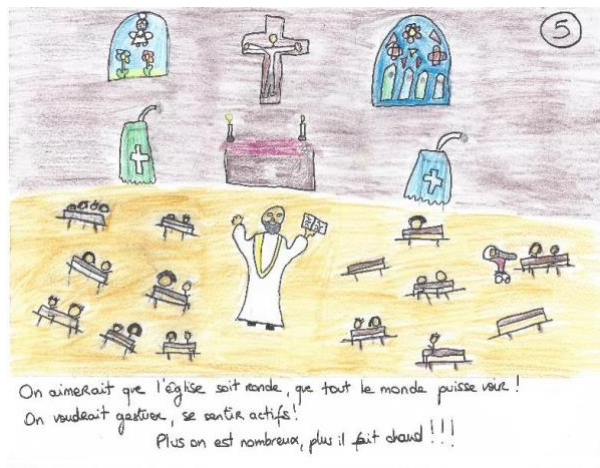 5
On aimerait que l'église soit ronde, que tout le monde puisse voir !
On voudrait gestuer, se sentir actifs !
Plus on est nombreux, plus il fait chaud !!!